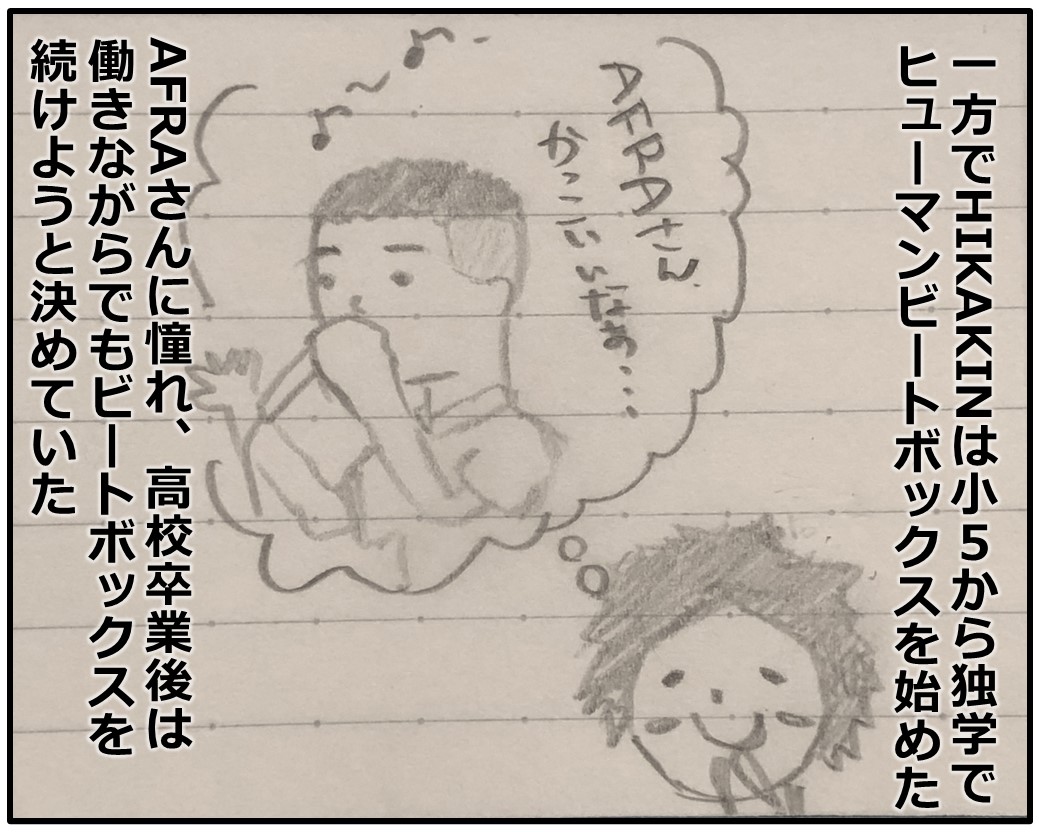 一方でHIKAKINは小5から独学で
ヒューマンビートボックスを始めた
AFRAさん、
かっこいいなぁ…
AFRAさんに憧れ、高校卒業後は
働きながらでもビートボックスを
続けようと決めていた